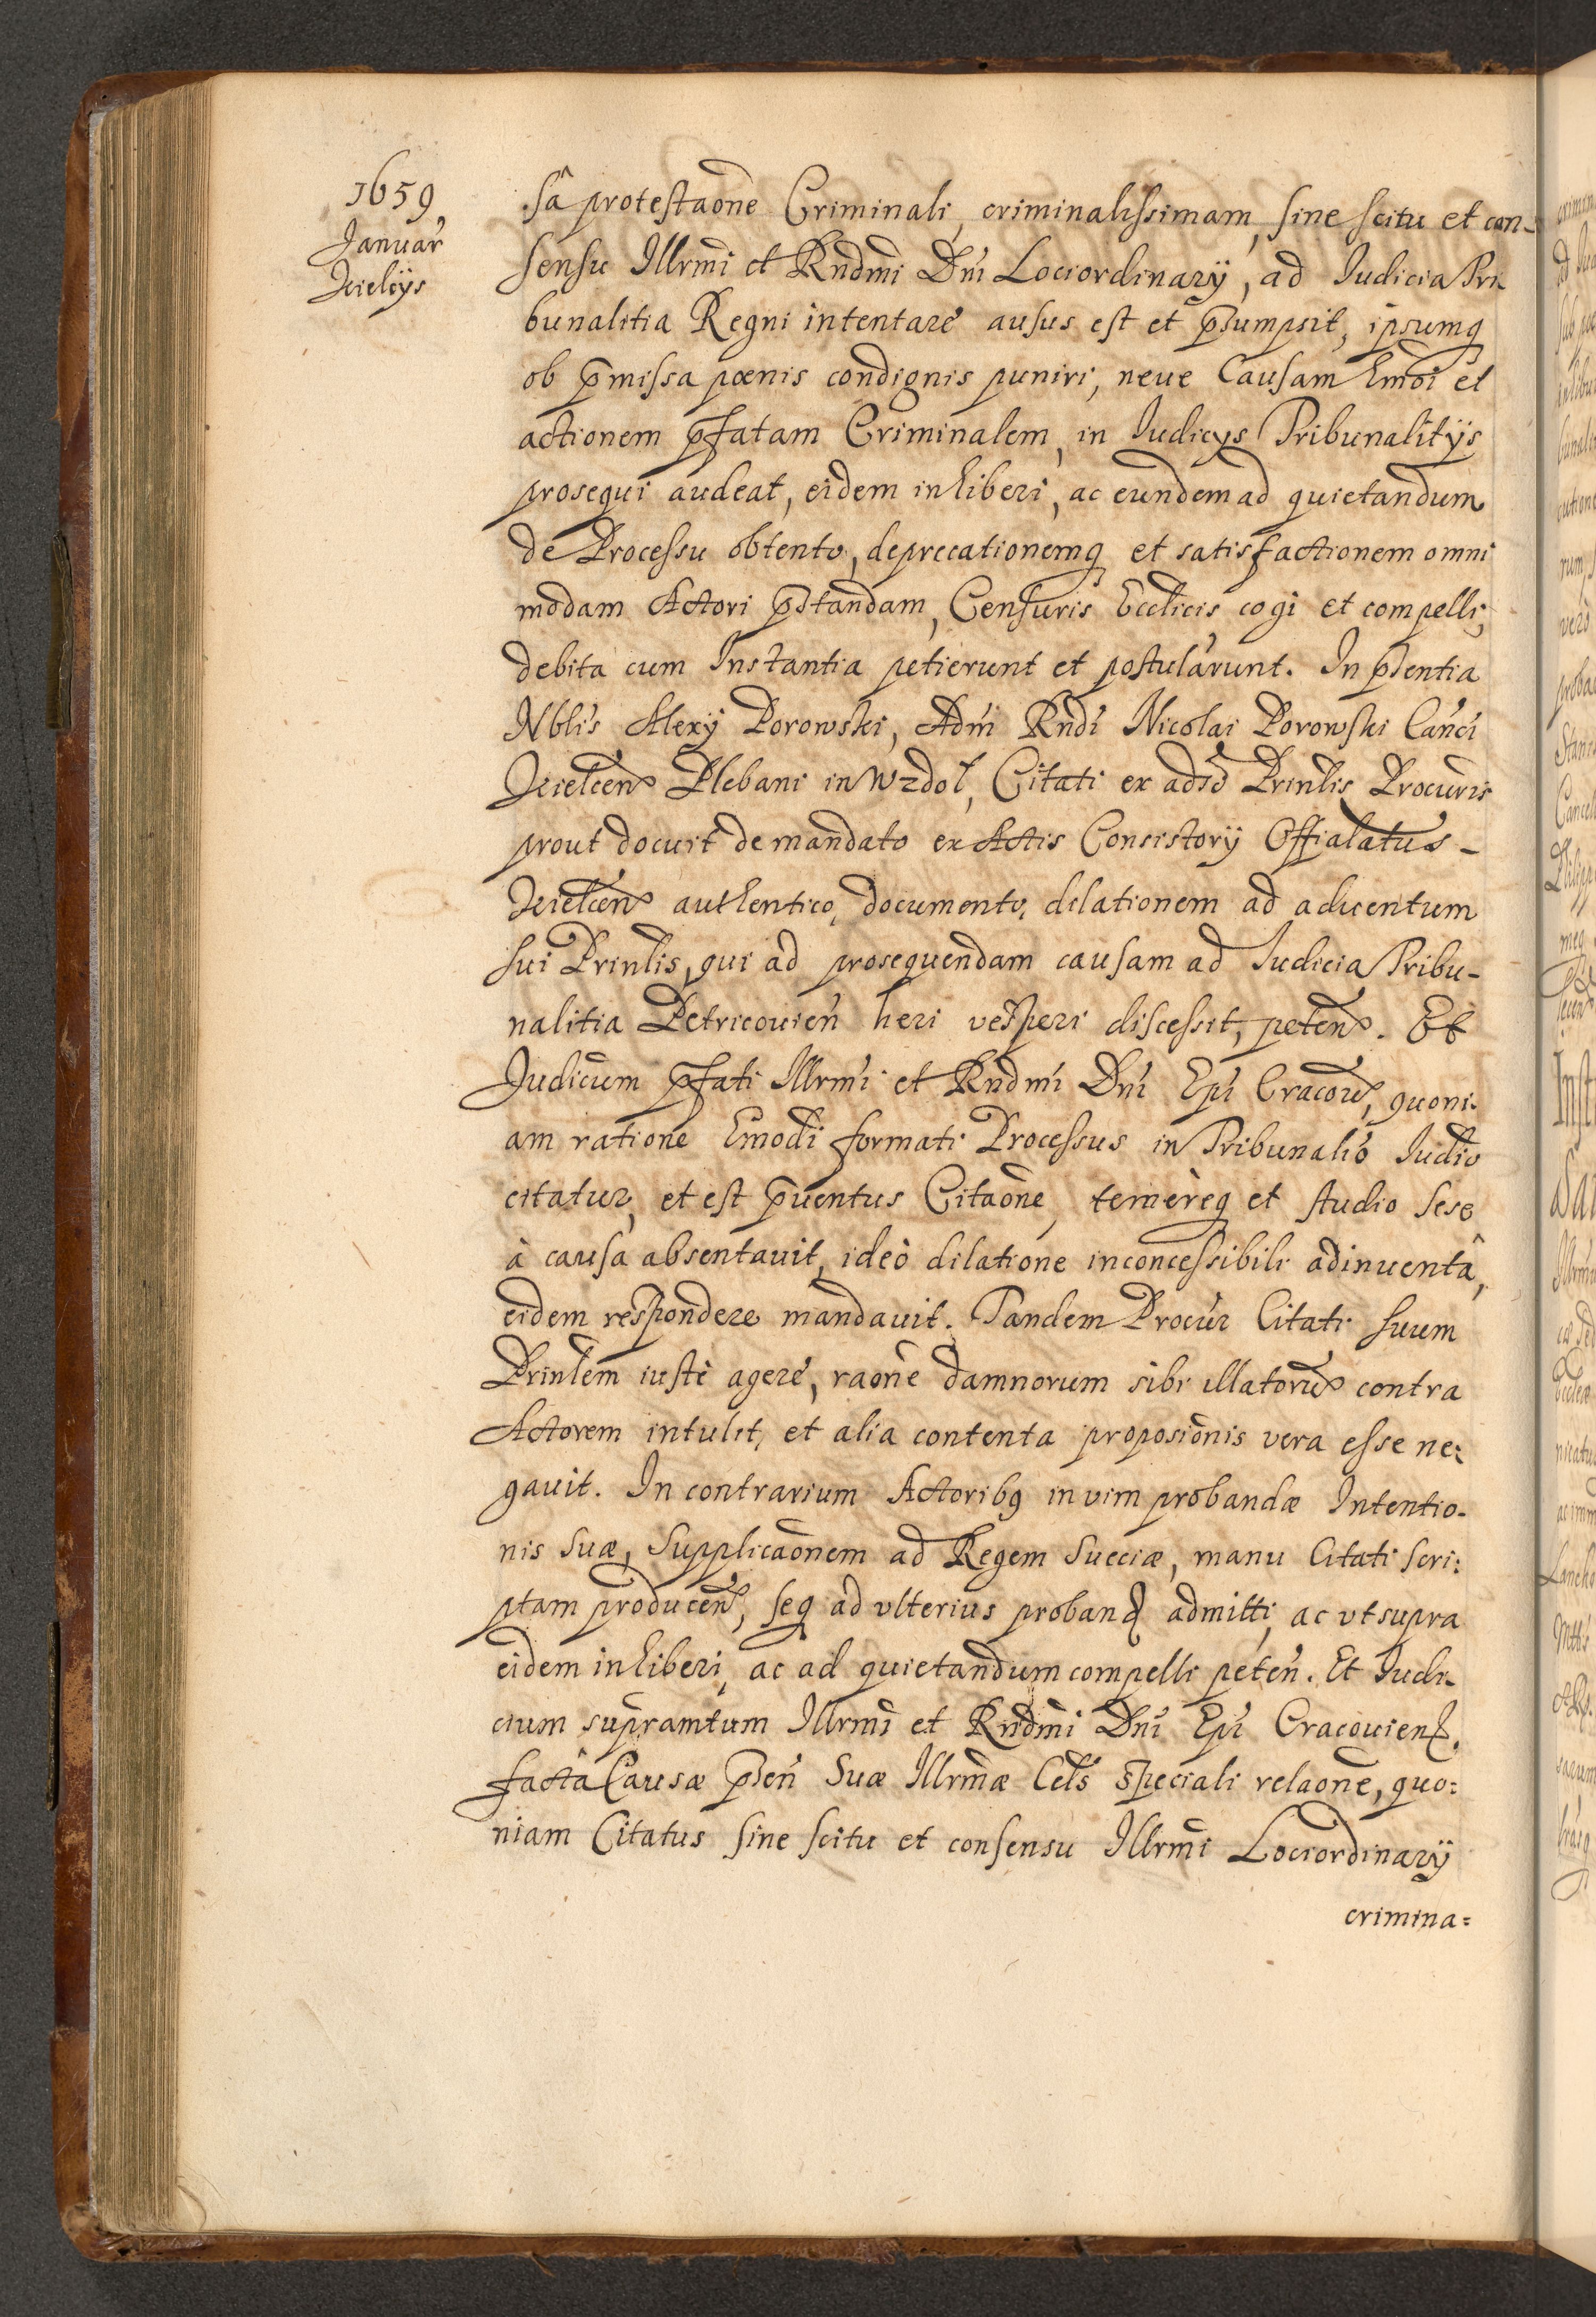 1659
Januar
Kielcijs
sâ protestaõne Criminali, criminalissimam, sine scitu et con-
sensu Illrmi et Rndmi Dni Lociordinarij, ad Iudicia Tri
bunalitia Regni intentare ausus est et p̃sumpsit, ipsumq
ob p̃missa pœnis condignis puniri, neue Causam Emoi et
actionem p̃fatam Criminalem, in Iudicys Tribunalitijs
prosequi audeat, eidem inhiberi, ac eundem ad quietandum
de Processu obtento, deprecationemq et satisfactionem omni
modam Actori p̃standam, Censuris Ecclicis cogi et compelli,
debita cum Instantia petierunt et postularunt. In p̃sentia
Nblis Alexij Porowski, Admi Rndi Nicolai Porowski Canci
Kielcen Plebani in Wzdol, Citati ex adso Prinlis Procuris
prout docuit de mandato ex Actis Consistorij Offialatus -
Kielcen authentico, documento, dilationem ad aduentum
sui Prinlis, qui ad prosequendam causam ad Iudicia Tribu-
nalitia Petricouien heri vesperi discessit, peten. Et
Judicium p̃fati Illrmi et Rndmi Dni Epi Cracou, quoni-
am ratione Emodi formati Processus in Tribunalio Iudio
citatur, et est p̃uentus Citaõne, temereq et studio sese
à causa absentauit, ideò dilatione inconcessibili adinuentâ,
eidem respondere mandauit. Tandem Procur Citati suum
Prinlem iustè agere, raone damnorum sibi illatorum contra
Actorem intulit, et alia contenta proposionis vera esse ne:
gauit. In contrarium Actoribq in vim probandæ Intentio-
nis suæ, Supplicaonem ad Regem Sueciæ, manu Citati scri:
ptam producen, seq ad vlterius proband admitti, ac vt supra
eidem inhiberi, ac ad quietandum compelli peten. Et Iudi-
cium supramtum Illrmi et Rndmi Dni Epi Cracouien.
factâ Causæ p̃sen Suæ Illrmæ Cels speciali relaone, quo:
niam Citatus sine scitu et consensu Illrmi Lociordinarij
crimina=